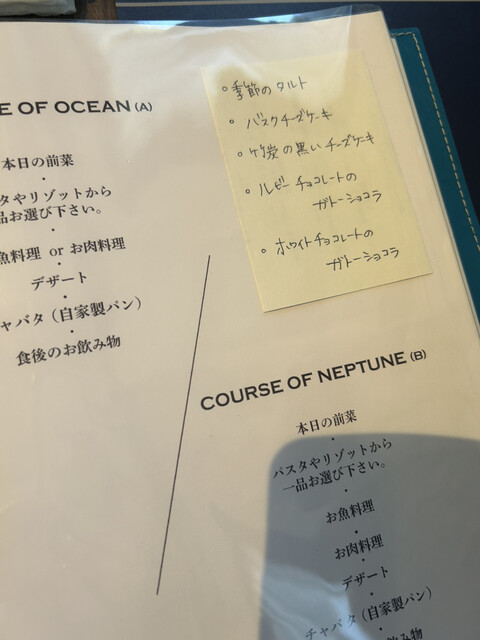 E OF OCEAN (A)
本日の前菜
タやリゾットから
品お選び下さい。
・
魚料理 or お肉料理
・
デザート
・
ャバタ（自家製パン）
・
食後のお飲み物
○季節のタルト
○バスクチーズケーキ
○竹炭の黒いチーズケーキ
○ルビーチョコレートの
ガトーショコラ
○ホワイトチョコレートの
ガトーショコラ
COURSE OF NEPTUNE (B)
本日の前菜
・
パスタやリゾットから
一品お選び下さい。
・
お魚料理
・
お肉料理
・
デザート
・
チャバタ（自家製パン）
・
お飲み物